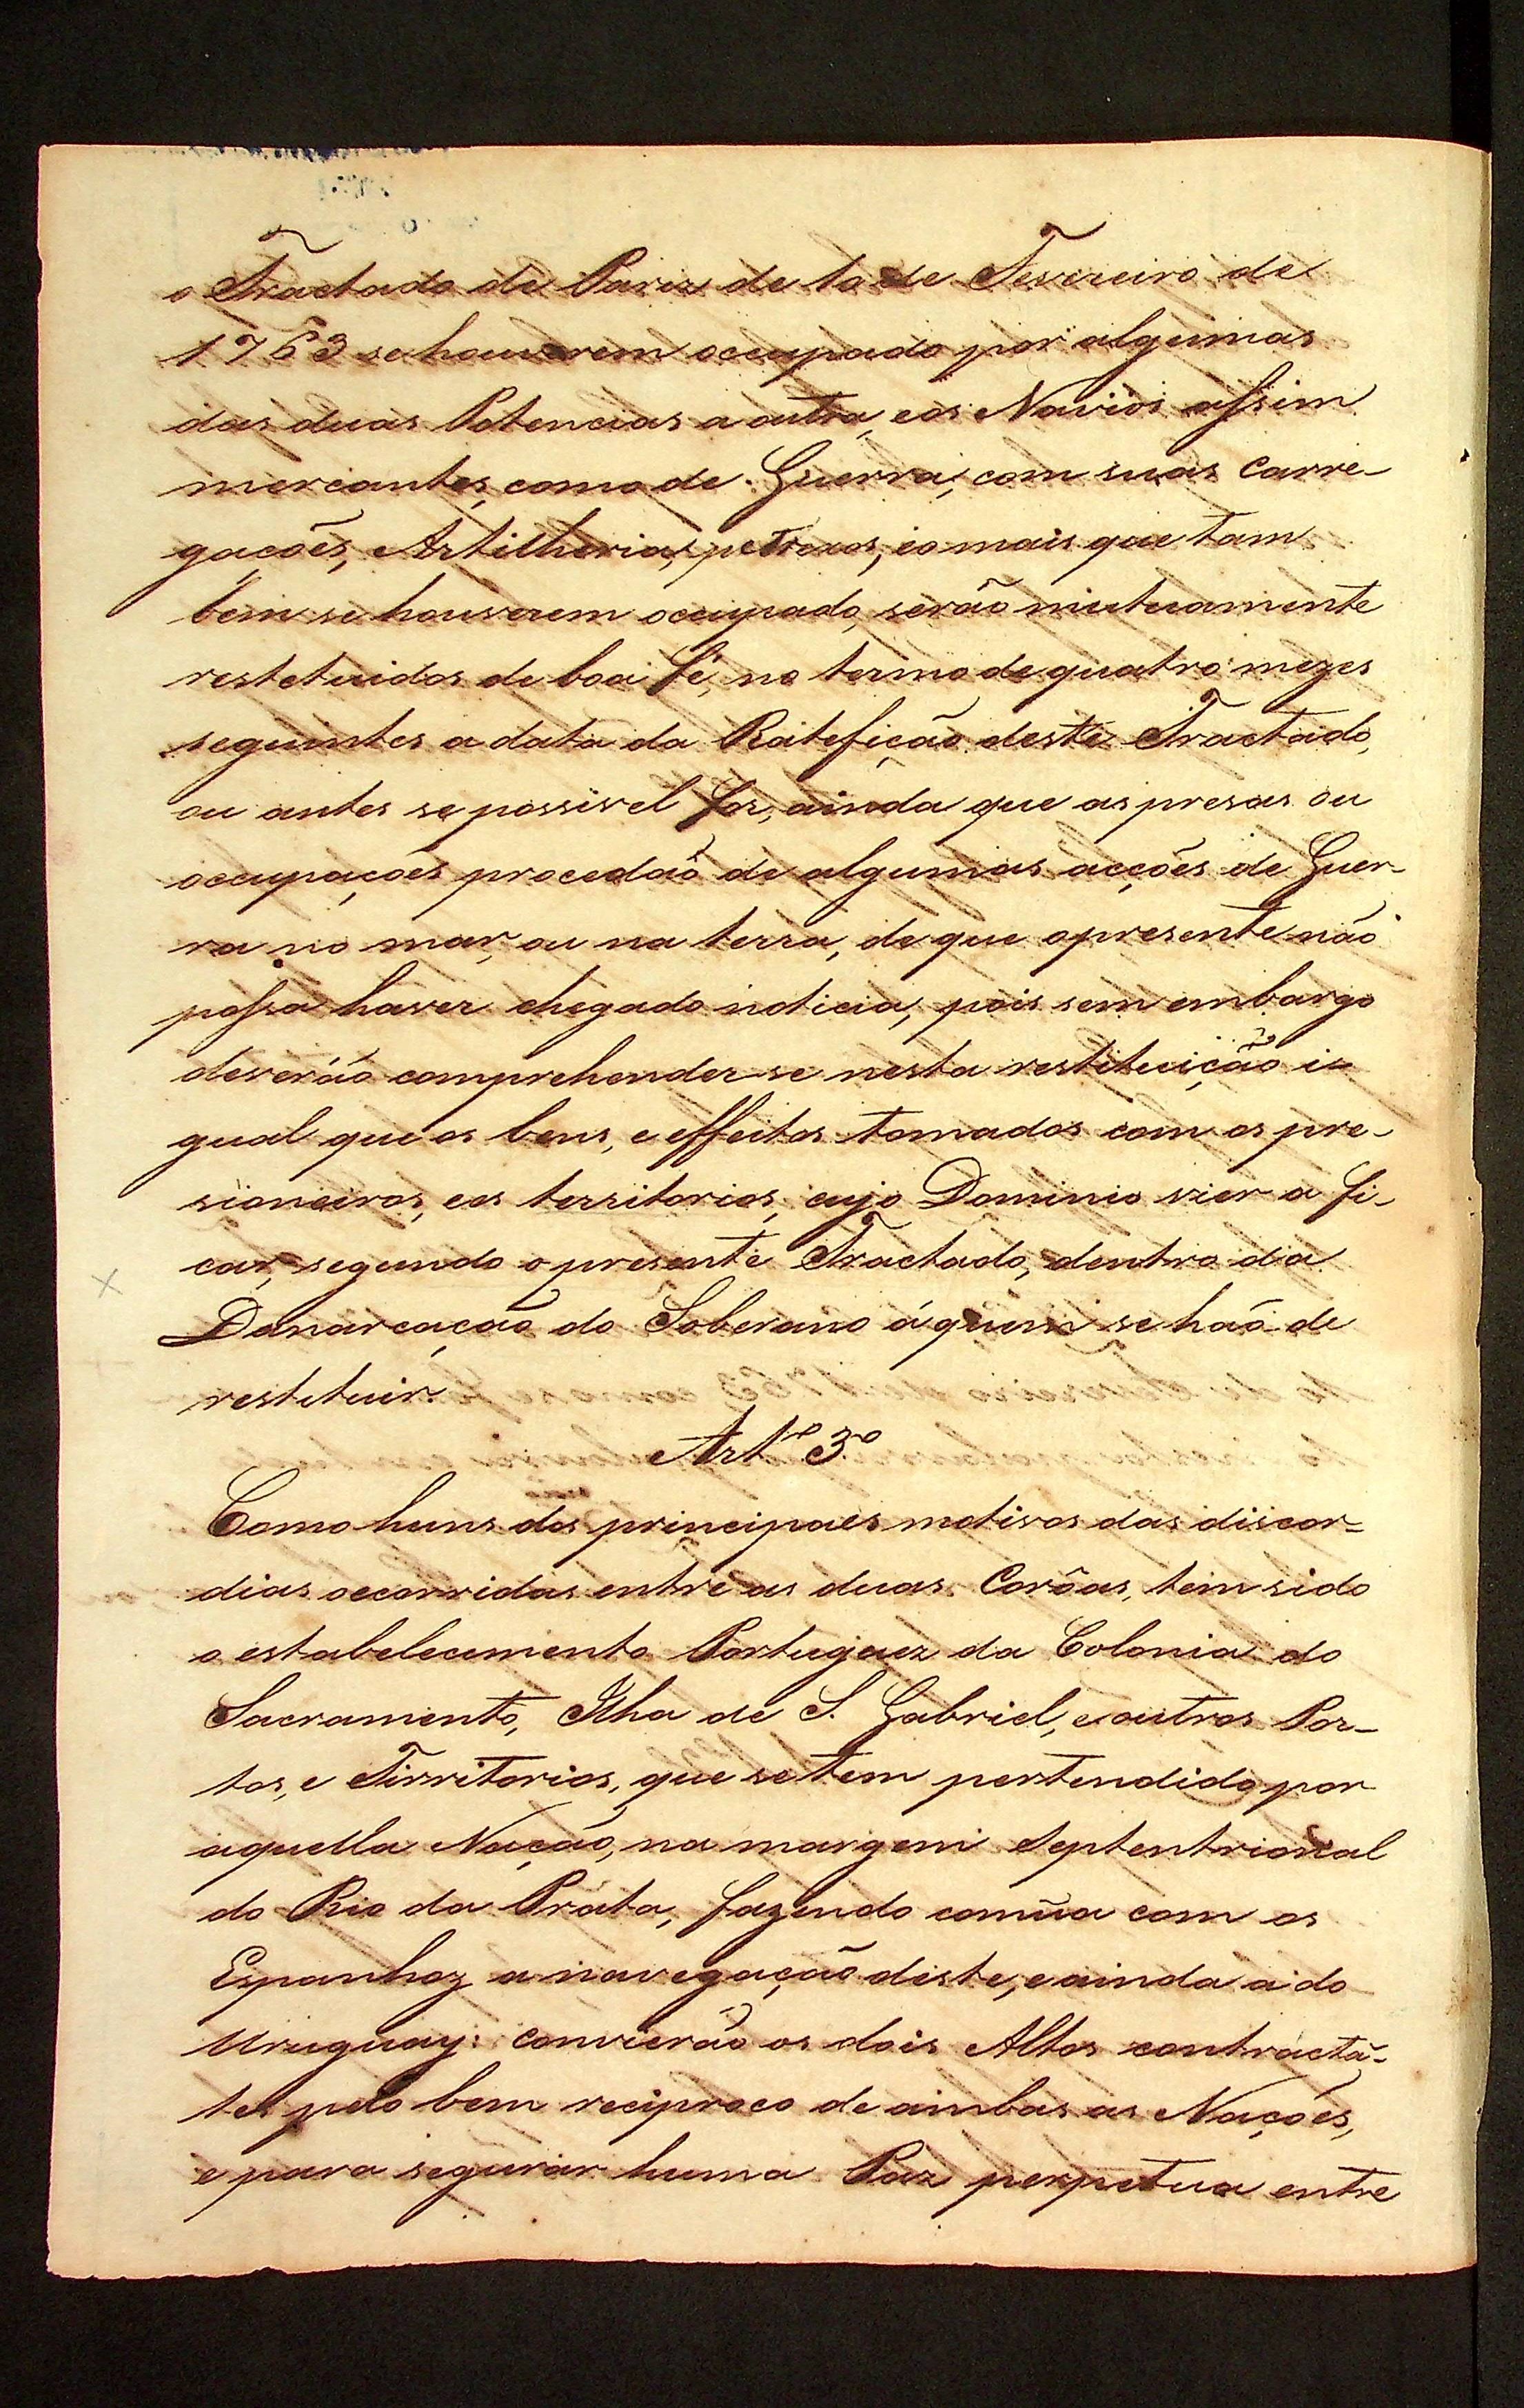 o Tractado de Pariz de 10 de Fevereiro de
1763 se houverem occupado por algumas
das duas Potencias a outra, e os Navios assim
mercantes, como de Guerra, com suas Carre-
gações, Artilheria, petrexos, e o mais que tam
bem se houverem occupado, serão mutuamente
restetuidos de boa fé, no termo de quatro mezes
seguintes a data da Ratefição deste Tractado,
ou antes se possivel for, ainda que as presas ou
occupações procedão de algumas acções de Guer-
ra no mar, ou na terra, de que o presente não
possa haver chegado noticia, pois sem embargo
deverão comprehender-se nesta restituição i-
gual que os bens, e effeitos tomados com os pre-
sioneiros, e os territorios, cujo Dominio vier a fi-
car, segundo o presente Tractado, dentro da
Demarcação do Soberano á quem se hão de
restetuir.
Artº 3º
Como huns dos principaes motivos das discor-
dias occorridas entre as duas Corôas, tem sido
o estabelecimento Portuguez da Colonia do
Sacramento, Ilha de S. Gabriel, e outros Por-
tos, e Tirritorios, que se tem pertendido por
aquella Nação, na margem Septentrional
do Rio da Prata, fazendo comũa com os
Espanhoz a navegação deste, e ainda a do
Uruguay: convierão os dois Altos contractã-
tes pelo bem reciproco de ambas as Nações,
e para segurar huma Paz perpetua entre